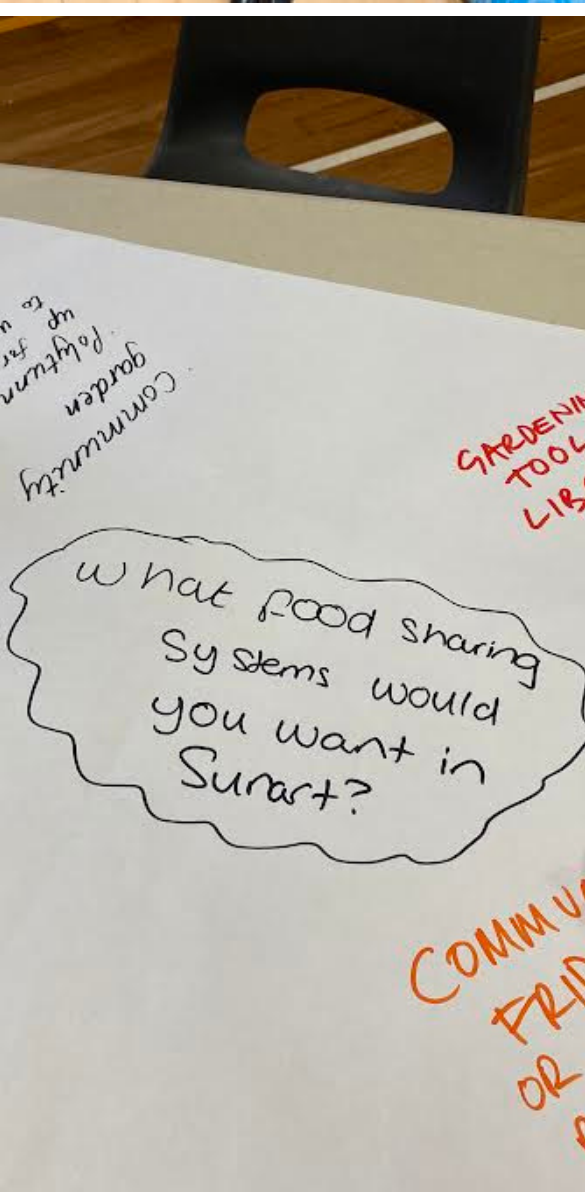 Community
garden
up
to
GARDENIN
TOOL
LIB
What food sharing
Systems would
you want in
Sunart?
COMMU
FRID
OR